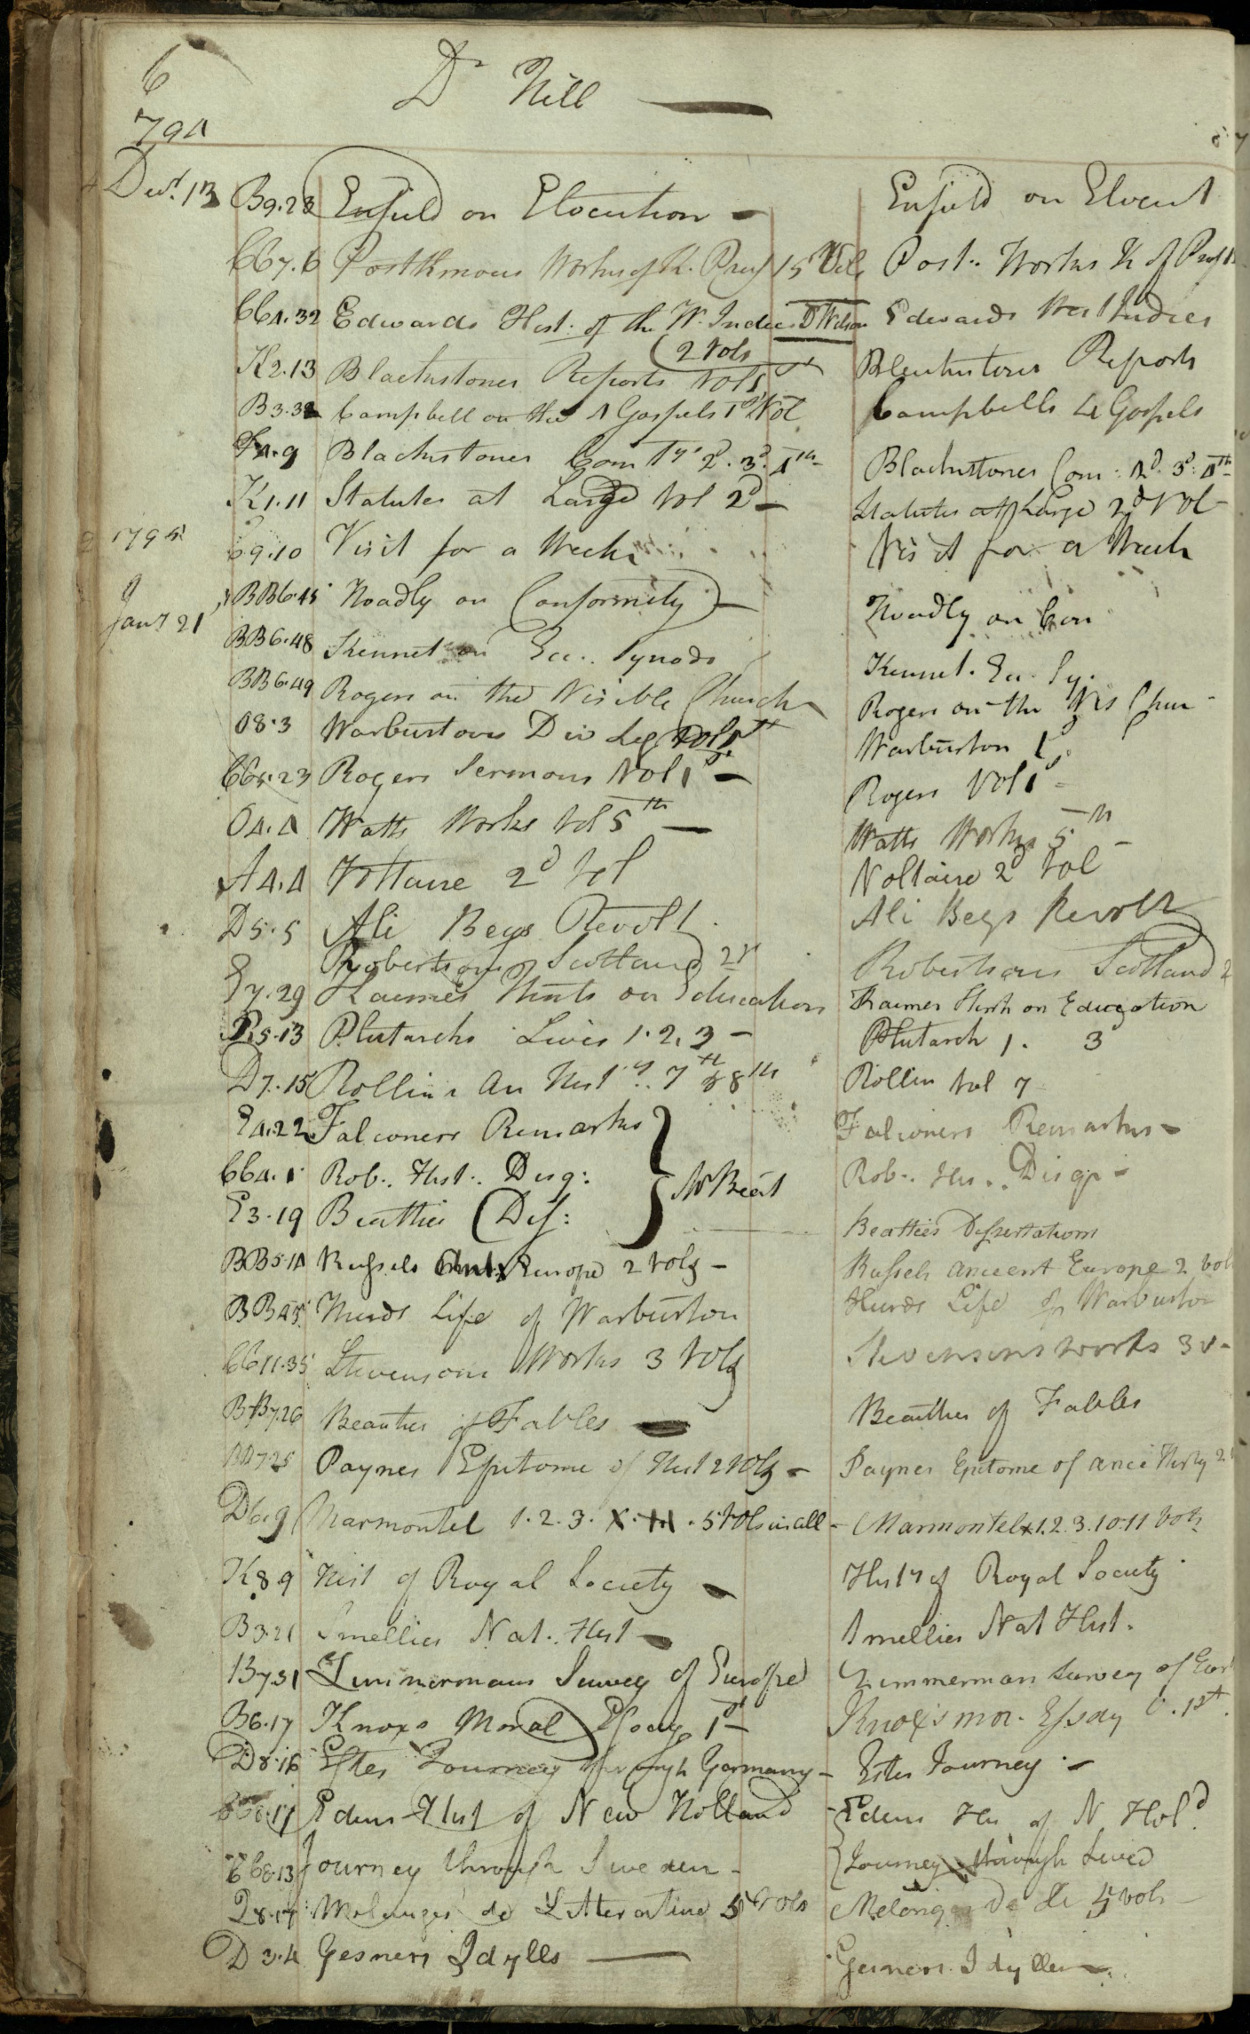 6
Dr Hill
794
Decr. 13 B9.23 Enfield on Elocution Enfield on Elocut
CC7.6 Posthmous Works of K. Prus 15 Vols Post.. Works K of Prus
CC4.32 Edwards Hist. of the W. Indies Dr Wilson Edwards West Indies
2 Vols
K2.13 Blackstones Reports Vol 1st Blackstones Reports
B3.32 Campbell on the 4 Gospels 1st Vol Campbells 4 Gospels
F4.9 Blackstones Com 1st 2d. 3d. 4th Blackstones Com: 2d 3d. 4th
K1.11 Statutes at Large Vol 2d Statutes at Large 2d Vol
1795 E9.10 Visit for a Week Visit for a Week
Jany 21 BB6.45 Hoadly on Conformity Hoadly on Con
BB6.48 Kennet on Ecc.. Synods Kennet. Ecc. Sy.
BB6.49 Rogers on the Visible Church Rogers on the Vis Chur
O8.3 Warburtons Div Leg Vol 1st Warburton 1
CC5.23 Rogers Sermons Vol 1st Rogers Vol 1st
O4.4 Watts Works Vol 5th Watts Works 5th
A4.4 Voltaire 2d Vol Voltaire 2d Vol
D5.5 Ali Beys Revolt Ali Beys Revolt
Robertsons Scotland 2v Robertsons Scotland 2
E7.29 Kaimes Hints on Education Kaimes Hints on Education
P.5.13 Plutarchs Lives 1.2.3 Plutarch 1. 3
D7.15 Rollins An Histy.. 7th & 8th Rollin Vol 7
E4.22 Falconers Remarks Falconers Remarks
CC4.1 Rob.. Hist.. Disq: Mr Beat Rob.. His.. Disq:
E3.19 Beattie Dis: Beatties Dissertations
BB5.14 Russels Anct Europe 2 Vols Russels Ancient Europe 2 Vols
BB4.5 Hurds Life of Warburton Hurds Life of Warburton
CC11.35 Stevensons Works 3 Vols Stevensons works 3 v
BB7.26 Beauties of Fables Beauties of Fables
7.25 Paynes Epitome of Hist 2 Vols Paynes Epitome of Anct Histy 2
D6.9 Marmontel 1.2.3.X.11.5 Vols in all Marmontel 1.2.3.10.11 Vols
K8.9 Hist of Royal Society Histy of Royal Society
B3.21 Smellies Nat.. Hist Smellies Nat Hist.
B7.31 Zimmermans Survey of Europe Zimmerman Survey of Eur
B6.17 Knoxs Moral Essays 1st Knox's mor. Essay v. 1st.
D8.16 Estes Journey through Germany Estes Journey
Edens Hist of New Holland Edens His of N Hold.
CC8.13 Journey through Sweden Journey through Swed
Q8.17 Melanges de Litterature 5 Vols Melanges De Li 5 vols
D3.4 Gesners Idylls Gesners Idylles